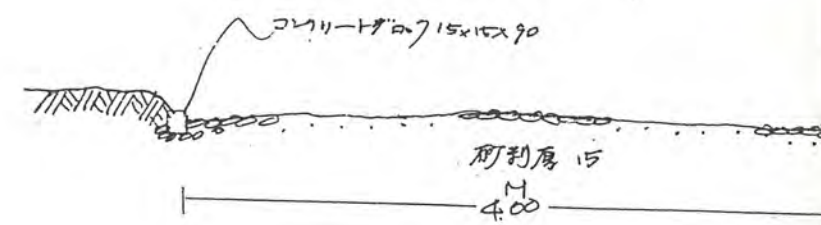 コンクリートブロック 15×15×90
砂利厚 15
M
4.00